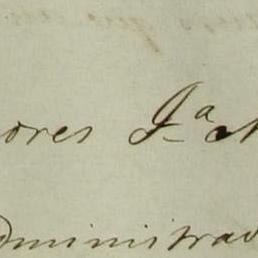 ores Jᵃ
dministrad